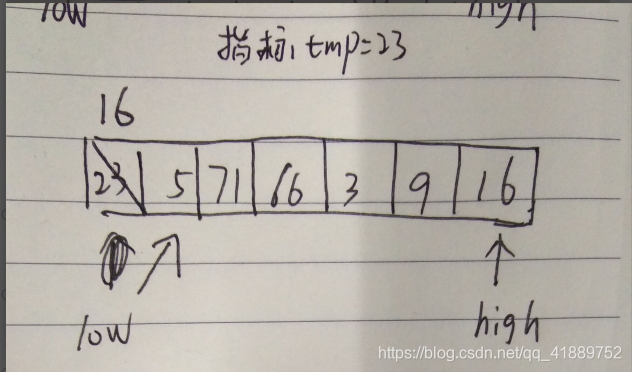 low high
指标,tmp=23
16
23 5 71 66 3 9 16
low high
https://blog.csdn.net/qq_41889752